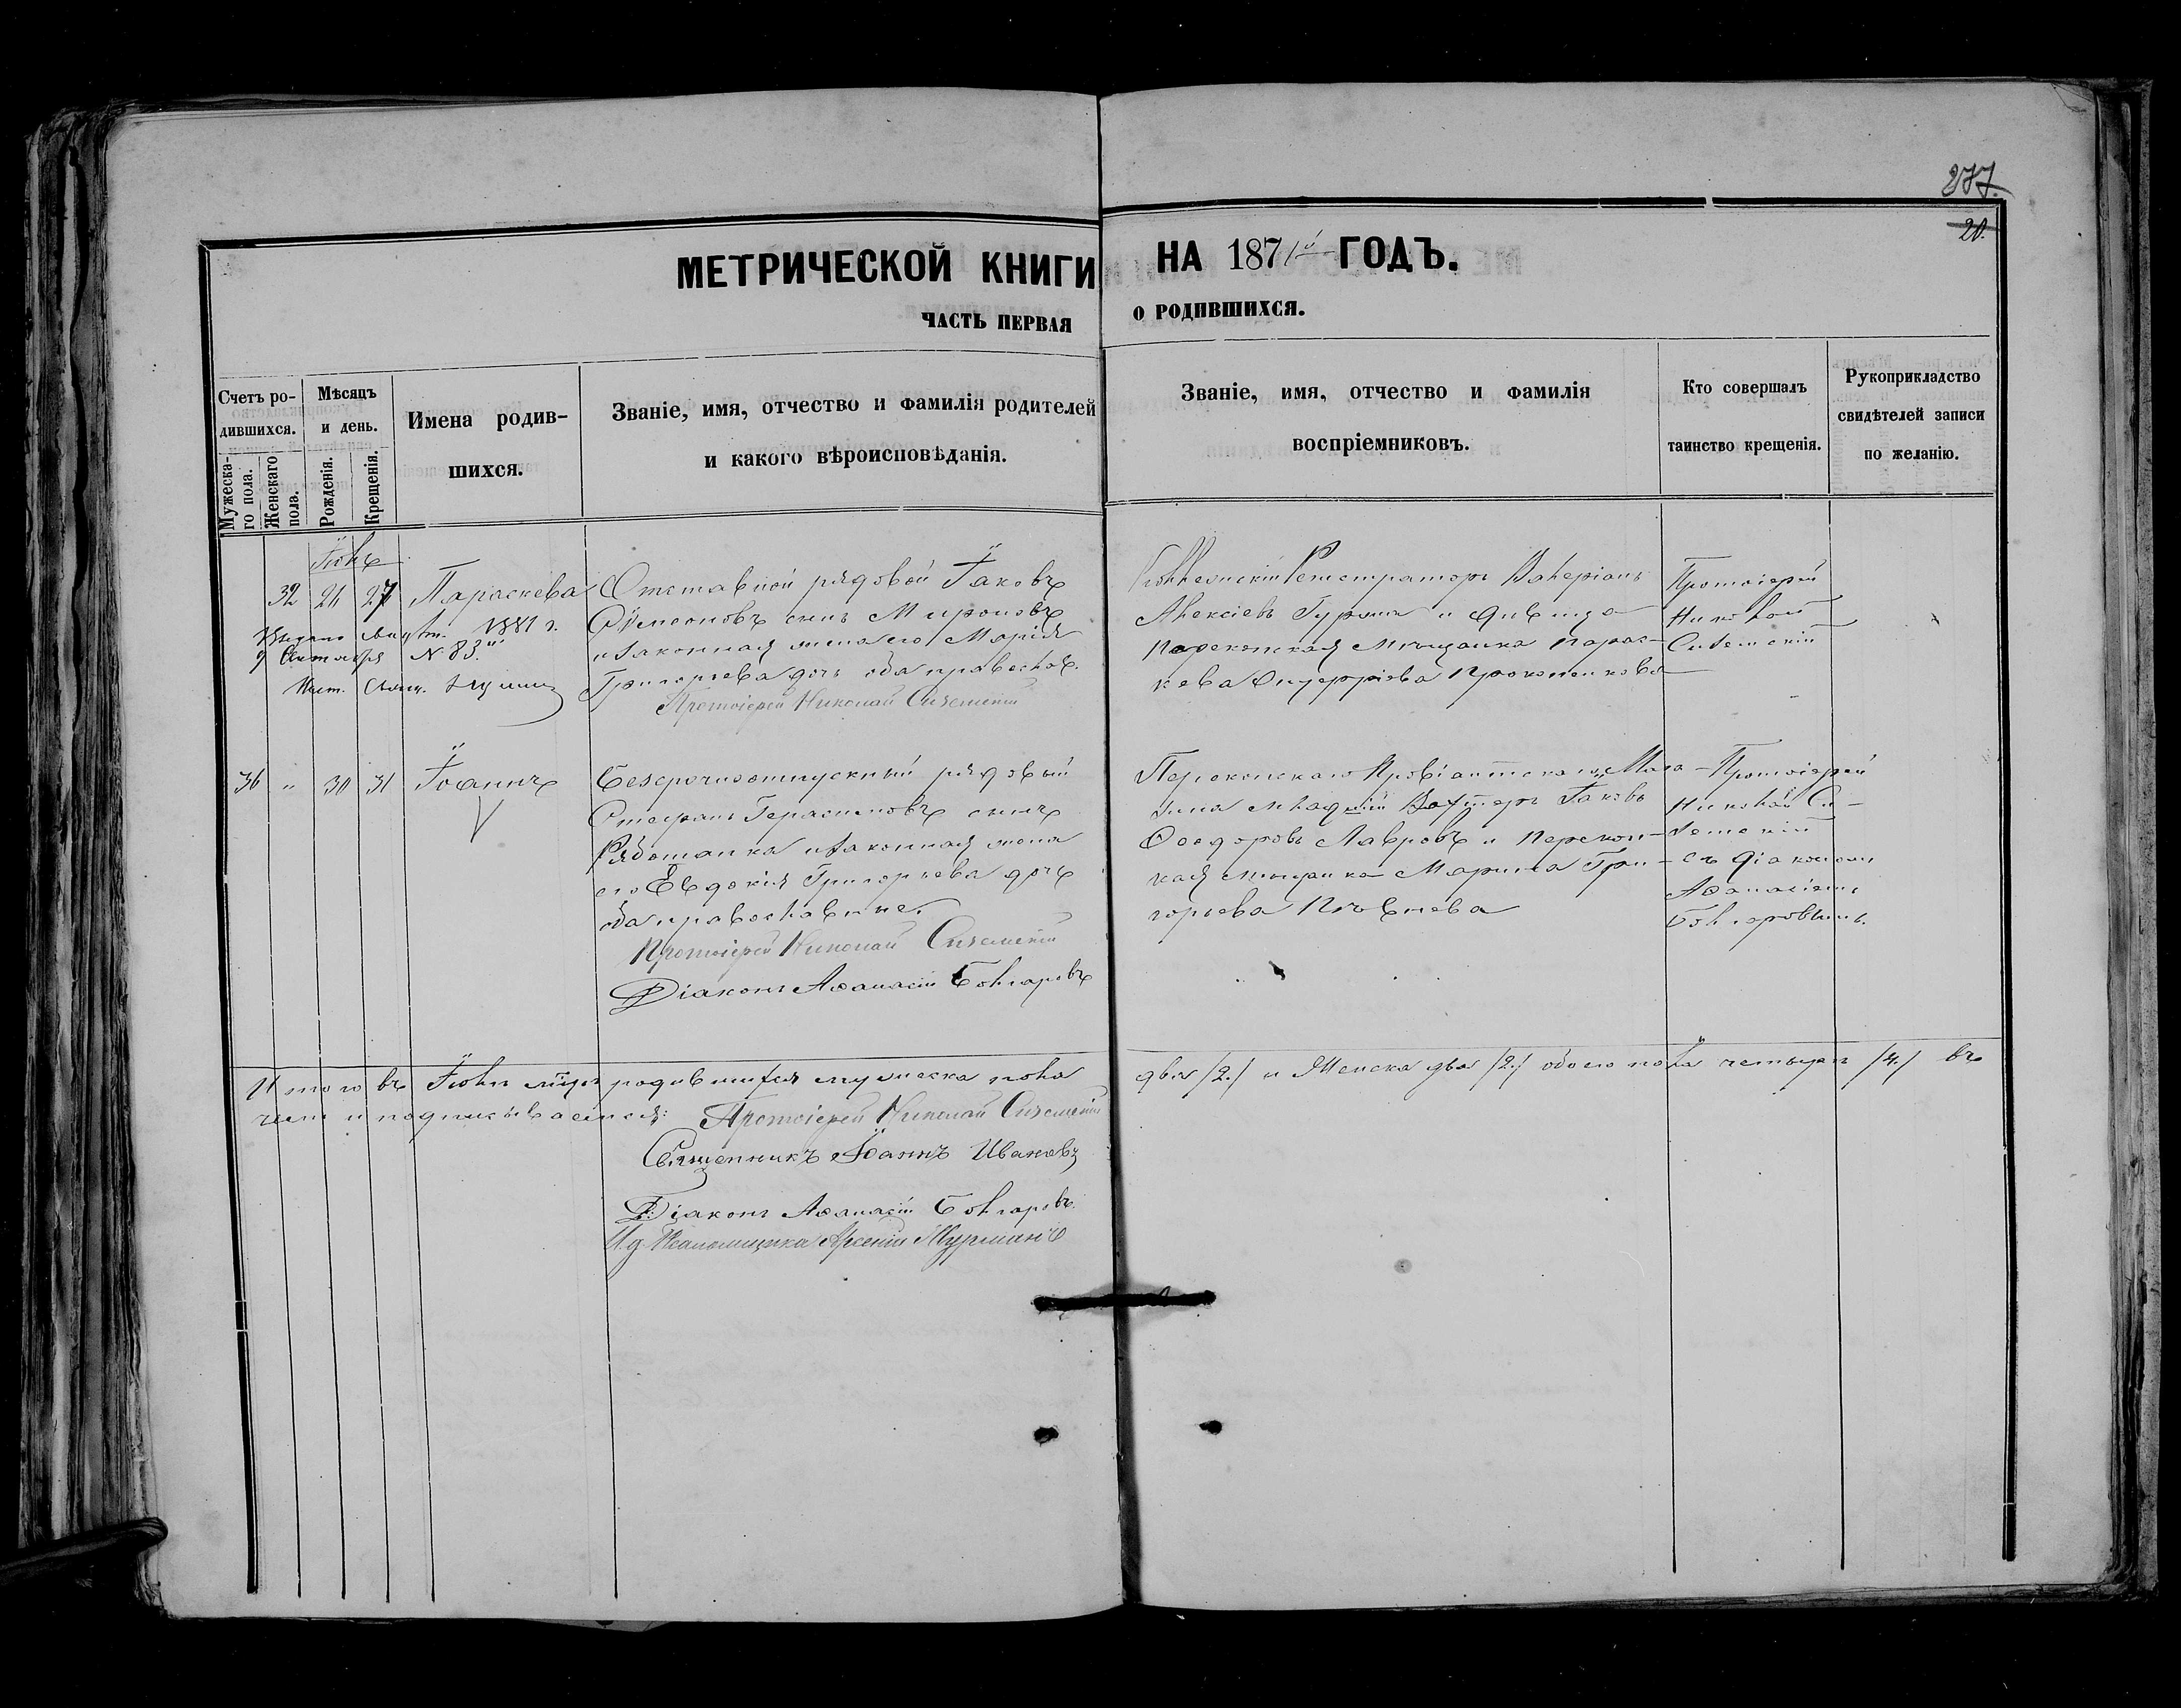 277.
20.
МЕТРИЧЕСКОЙ КНИГИ НА 1871й ГОДЪ.
ЧАСТЬ ПЕРВАЯ О РОДИВШИХСЯ.
Счетъ ро-
дившихся.
Мужеска-
го пола.
Женскаго
пола.
Мѣсяцъ
и день.
Рожденія.
Крещенія.
Имена родив-
шихся.
Званіе, имя, отчество и фамилія родителей
и какого вѣроисповѣданія.
Званіе, имя, отчество и фамилія
воспріемниковъ.
Кто совершалъ
таинство крещенія.
Рукоприкладство
свидѣтелей записи
по желанію.
Іюль
32 21 27 Параскева
1881 г.
9 Сентября № 83.
Отставной рядовой Іаковъ
Симеоновъ сынъ Мироновъ
и законная жена его Марія
Григорьева дочь оба православн.
Протоіерей Николай Сиземскій
Коллежскій Регистраторъ Валеріанъ
Алексіевъ и дѣвица
Перекопская мѣщанка Парас-
кева Прокопенкова
Протоіерей
Николай
Сиземскій
36 " 30 31 Іоаннъ
Безсрочноотпускный рядовый
Стефанъ Герасимовъ сынъ
Рябошапка и законная жена
его Евдокія Григорьева дочь
оба православные.
Протоіерей Николай Сиземскій
Діаконъ Аѳанасій Болгаровъ
Перекопскаго Провіантскаго Мага-
зина младшій Вахтеръ Іаковъ
Ѳеодоровъ Лавровъ и Перекоп-
кая мѣщанка Марина Гри-
горьева
Протоіерей
Николай Си-
земскій
съ діакономъ
Аѳанасіемъ
Болгаровымъ.
Итого въ Іюлѣ мцѣ родившихся мужеска пола два /2./ и Женска два /2./ обоего пола четыре /4./ въ
чемъ и подписываемся: Протоіерей Николай Сиземскій
Священникъ Іоаннъ Ивановъ
Діаконъ Аѳанасій Болгаровъ.
И. д. Псаломщика Арсеній Мурманъ